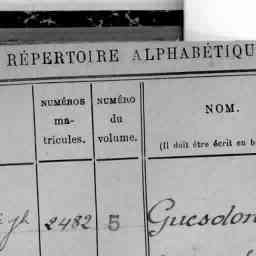 RÉPERTOIRE ALPHABÉTIQU
NUMÉROS
ma-
tricules.
NUMÉRO
du
volume.
NOM.
(Il doit être écrit en b
2482 5 Guesdon